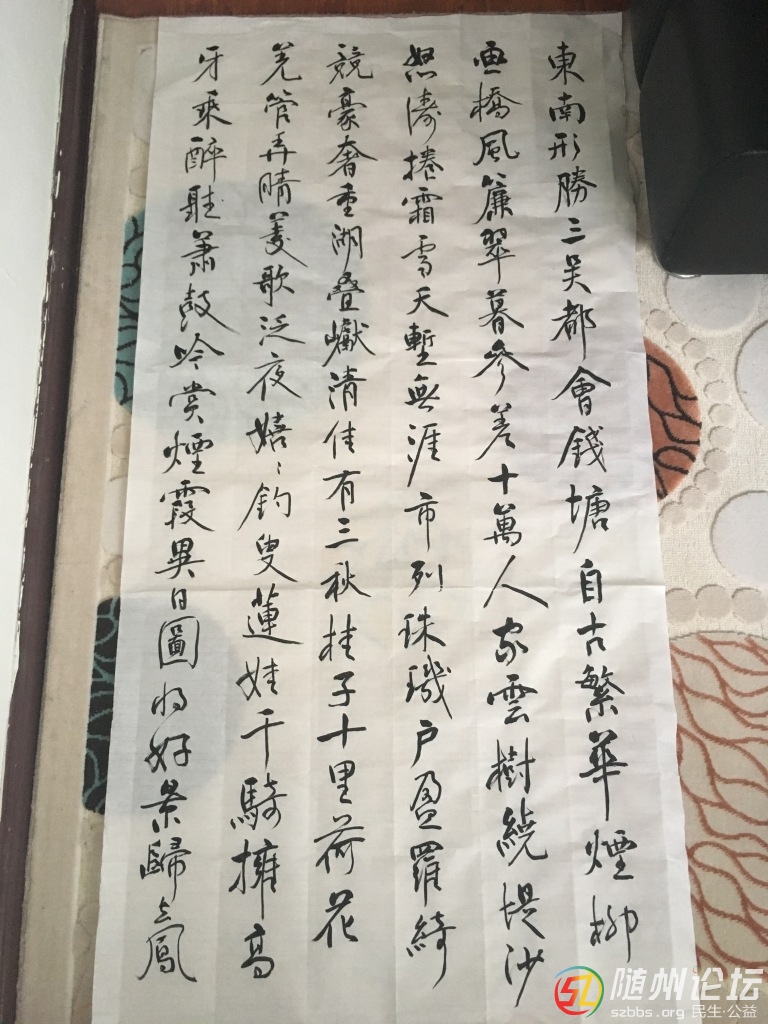 東南形勝三吴都會錢塘自古繁華煙柳
画橋風簾翠暮参差十萬人家雲樹繞堤沙
怒濤捲霜雪天塹無涯市列珠璣户盈羅綺
競豪奢重湖叠巘清佳有三秋桂子十里荷花
羌管弄晴菱歌泛夜嬉〻釣叟蓮娃千騎擁高
牙乘醉聽萧鼓吟赏煙霞異日圖将好景歸去鳳
随州论坛
szbbs.org 民生·公益